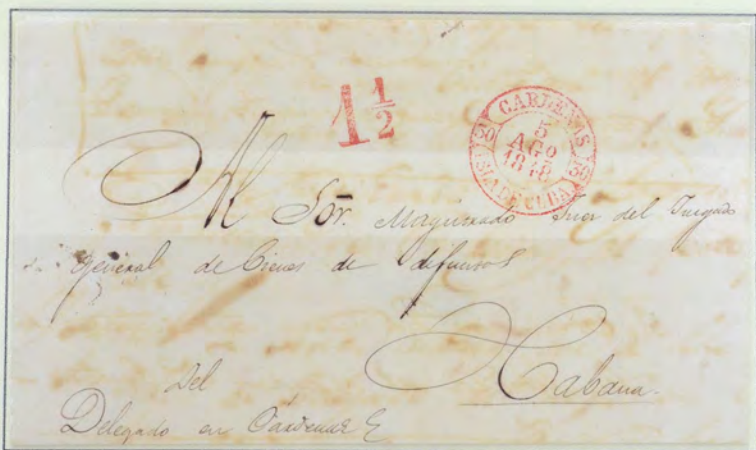 1 1/2
CARDENAS
5
AGO
1848
ISLA DE CUBA
Al Sor. Magistrado Juez del Juzgado
general de Bienes de difuntos
Habana.
Del
Delegado en Cárdenas